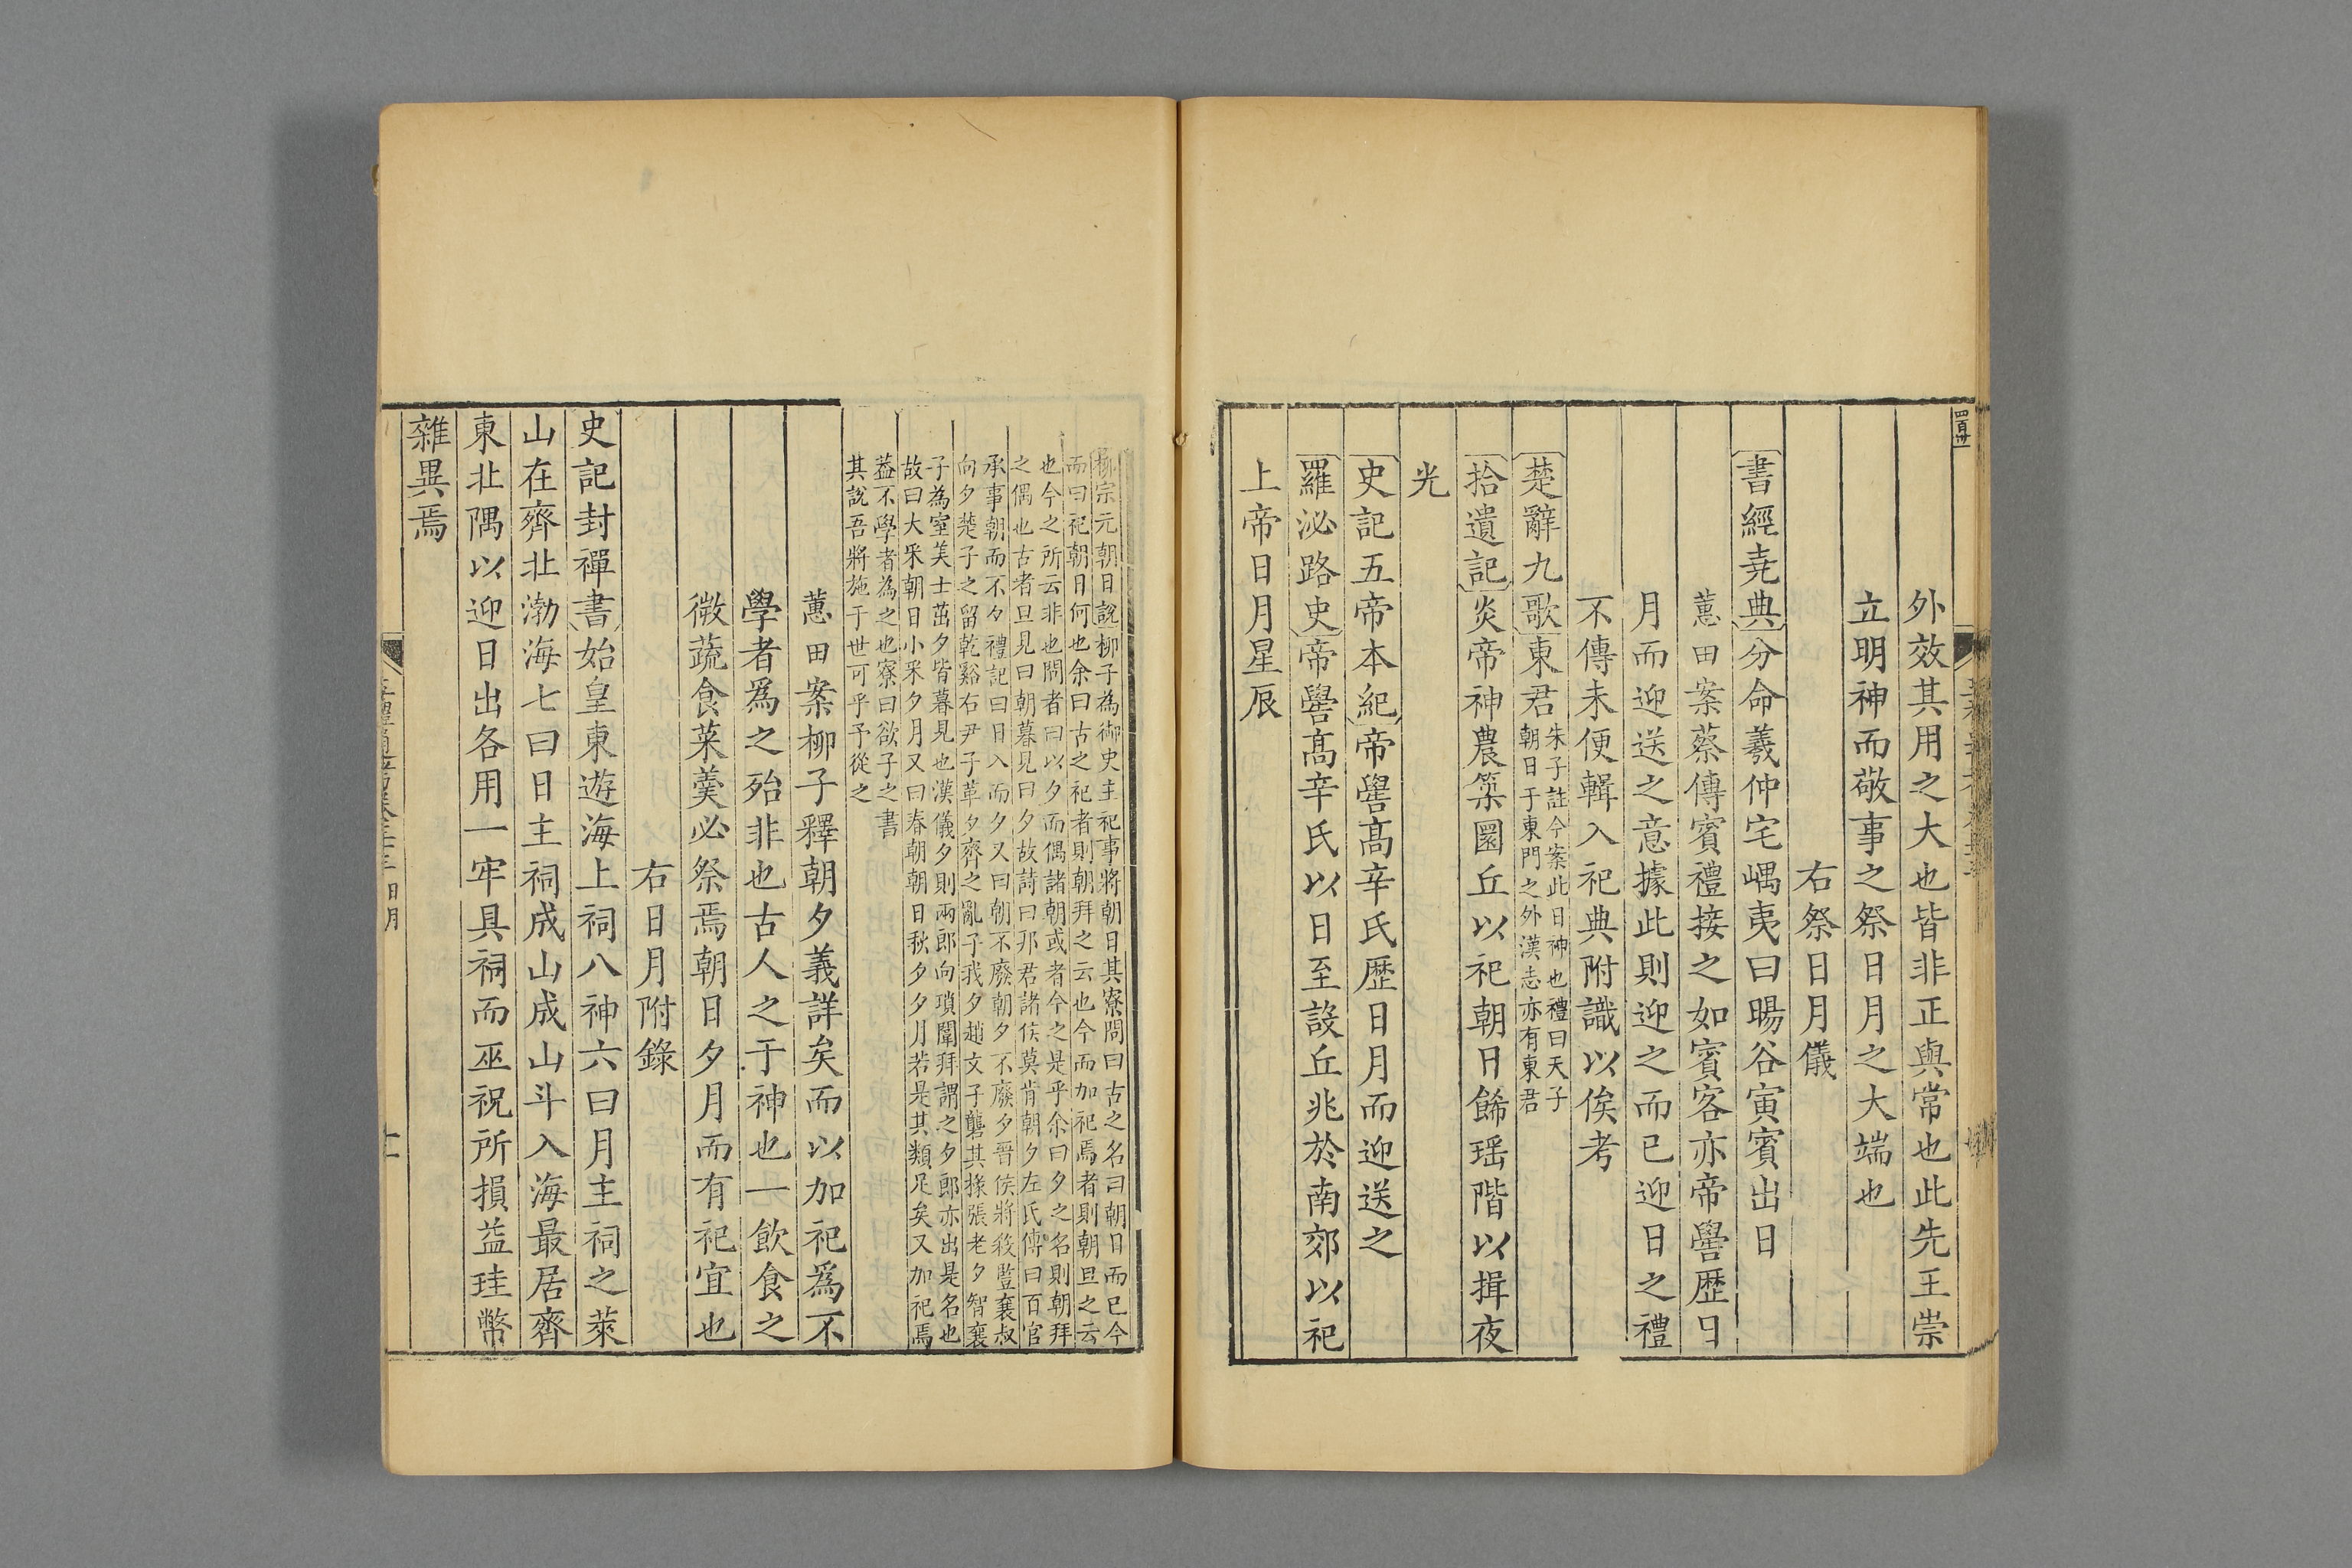 外效其用之大也皆非正與常也此先王崇
立明神而敬事之祭日月之大端也
右祭日月儀
書經堯典分命羲仲宅嵎夷曰暘谷寅賓出日
蕙田案蔡傳賓禮接之如賓客亦帝嚳歷日
月而迎送之意據此則迎之而已迎日之禮
不傳未便輯入祀典附識以俟考
楚辭九歌東君朱子註今案此日神也禮曰天子
朝日于東門之外漢志亦有東君
拾遺記炎帝神農築圜丘以祀朝日餙瑶階以揖夜
光
史記五帝本紀帝嚳髙辛氏歷日月而迎送之
羅泌路史帝嚳髙辛氏以日至設丘兆於南郊以祀
上帝日月星辰
柳宗元朝日說柳子為御史主祀事將朝日其寮問曰古之名曰朝日而已今
而曰祀朝日何也余曰古之祀者則朝拜之云也今而加祀焉者則朝旦之云
也今之所云非也問者曰以夕而偶諸朝或者今之是乎余曰夕之名則朝拜
之偶也古者旦見曰朝暮見曰夕故詩曰邦君諸侯莫肯朝夕左氏傳曰百官
承事朝而不夕禮記曰日入而夕又曰朝不廢朝夕不廢夕晉侯將殺豎襄叔
向夕楚子之留乾谿右尹子革夕齊之亂子我夕趙文子礱其椽張老夕智襄
子為室美士茁夕皆暮見也漢儀夕則兩郎向瑣闈拜謂之夕郎亦出是名也
故曰大采朝日小采夕月又曰春朝朝日秋夕夕月若是其類足矣又加祀焉
葢不學者為之也寮曰欲子之書
其說吾將施于世可乎予從之
蕙田案柳子釋朝夕義詳矣而以加祀爲不
學者爲之殆非也古人之于神也一飲食之
微蔬食菜羮必祭焉朝日夕月而有祀宜也
右日月附錄
史記封禪書始皇東遊海上祠八神六曰月主祠之萊
山在齊北渤海七曰日主祠成山成山斗入海最居齊
東北隅以迎日出各用一牢具祠而巫祝所損益珪幣
雜異焉
日月